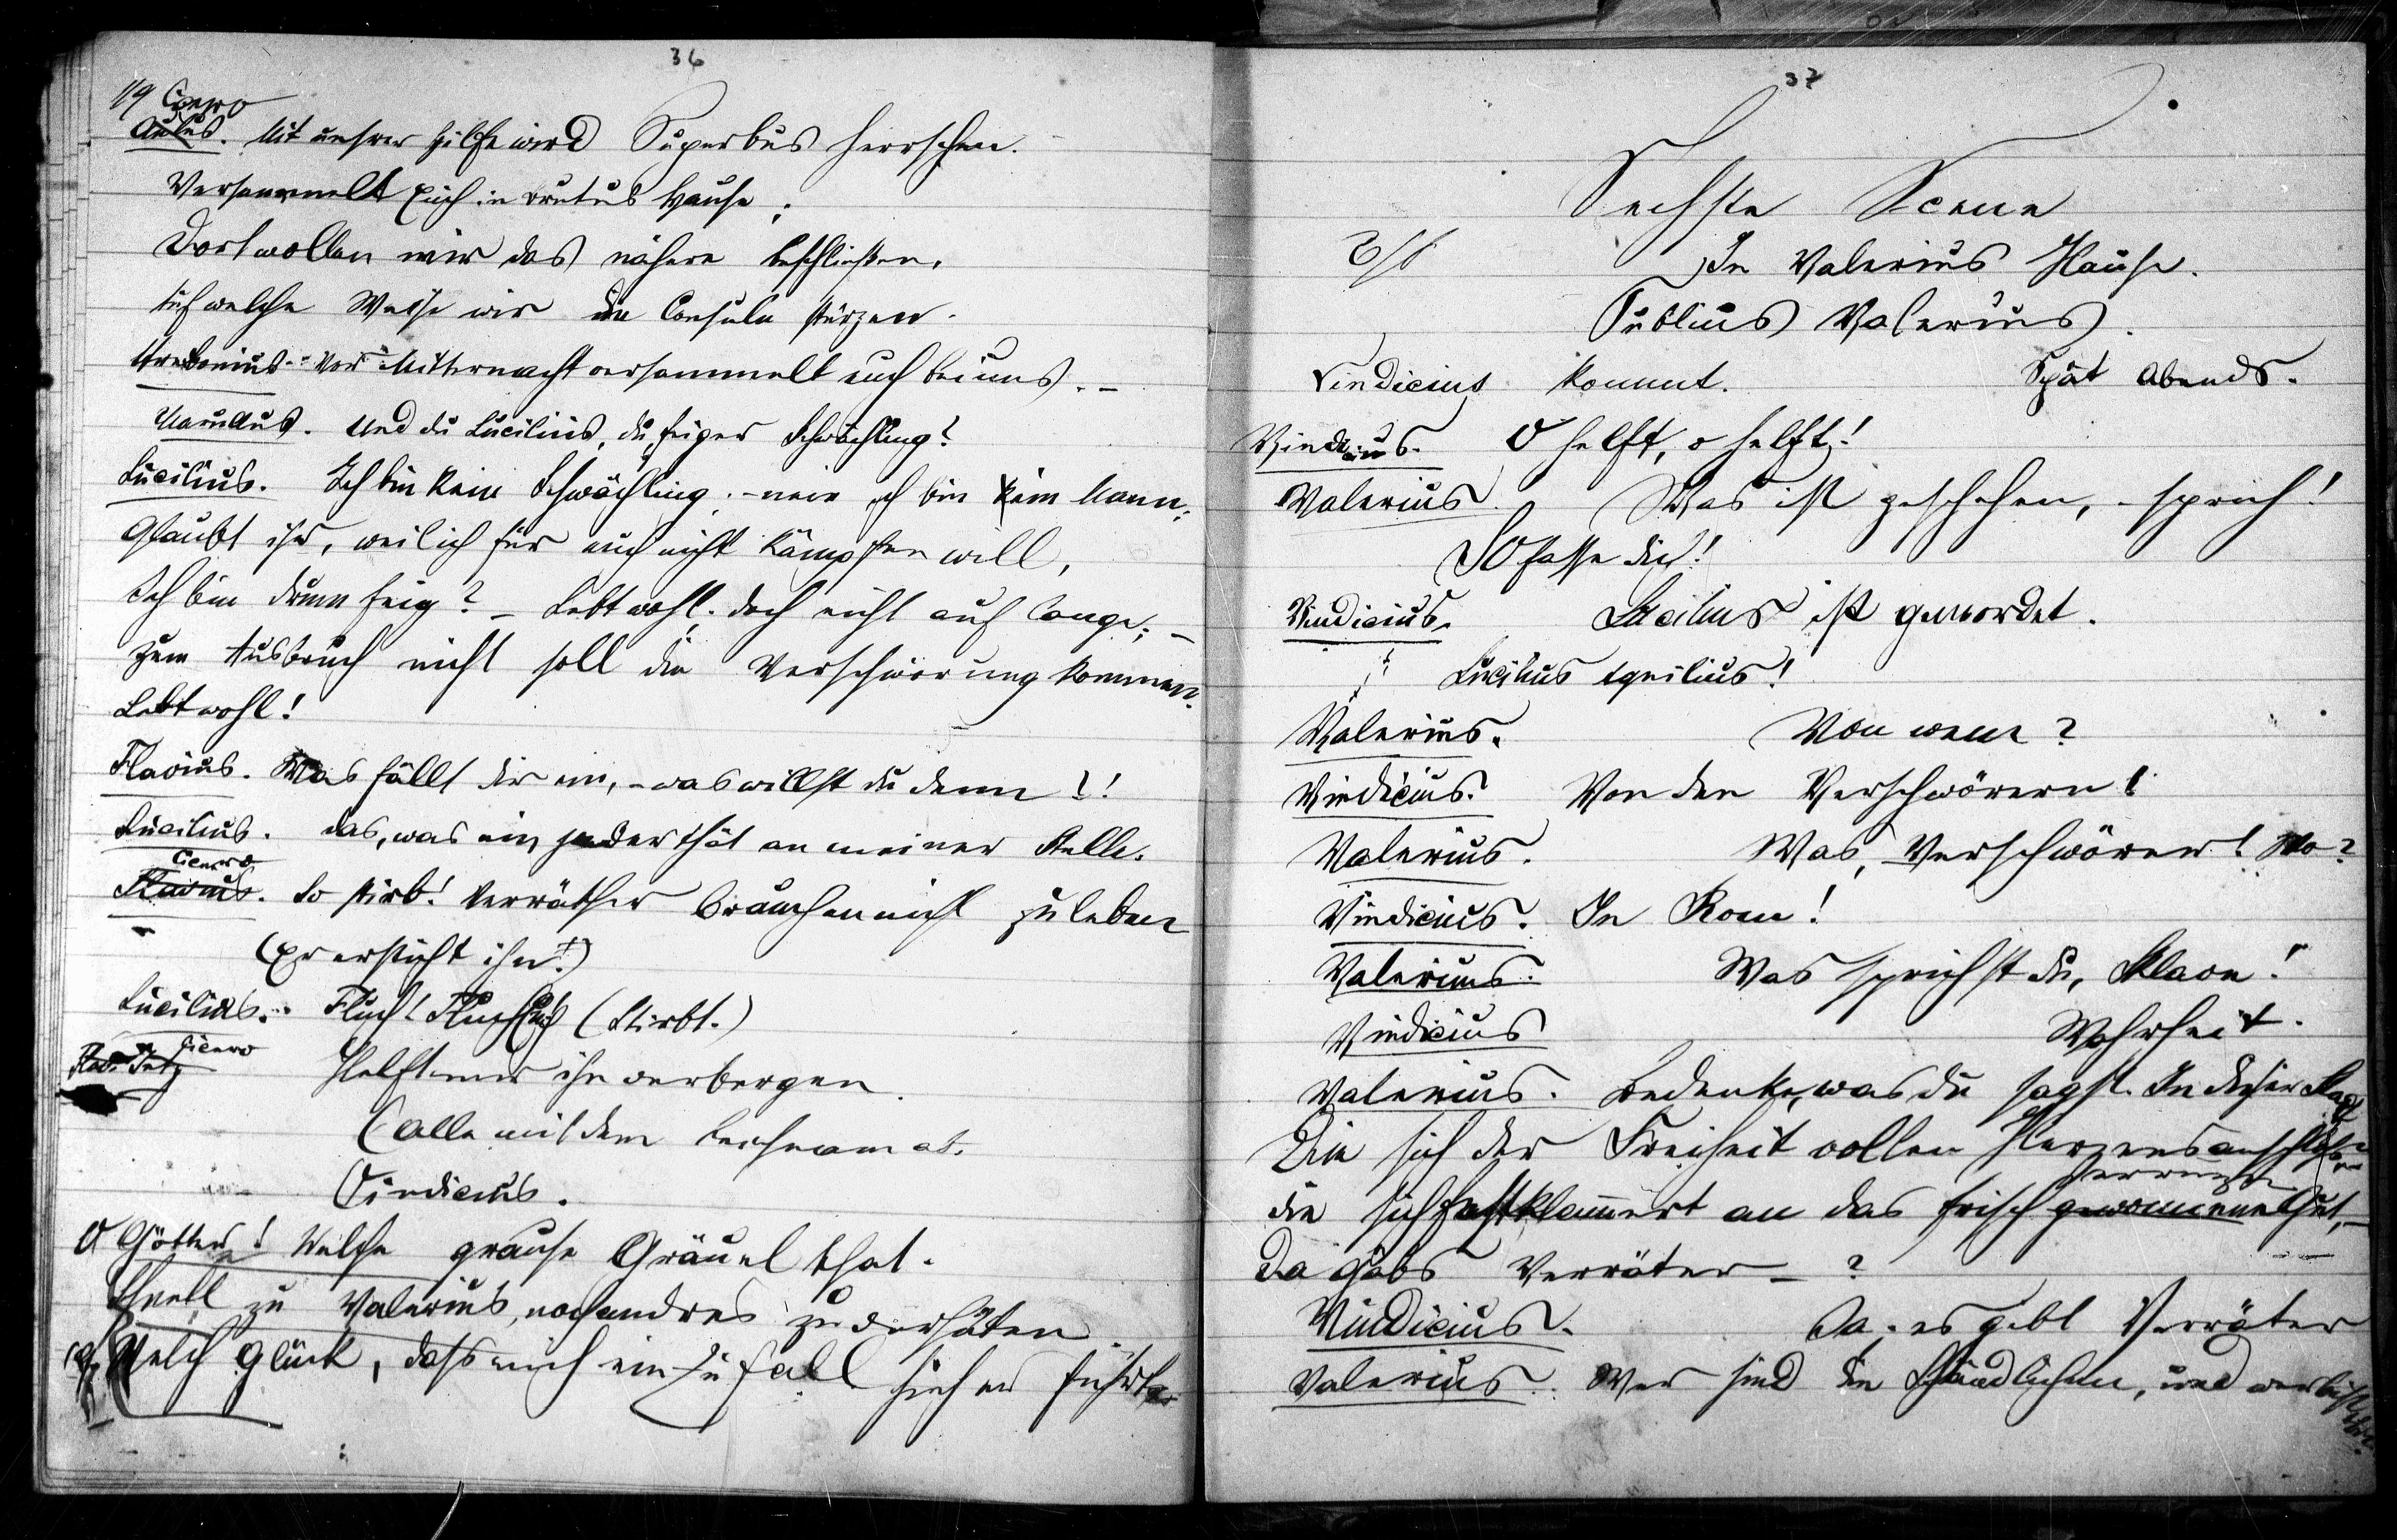 36
119 Cicero
Aulus. Mit unsrer Hilfe wird Superbus herrschen.
Versammelt Euch in Brutus Hause;
Dort wollen wir das nähere beschließen,
Auf welche Weise wir die Consuln stürzen.
Trebonius. Vor Mitternacht versammelt euch bei uns. –
Marullus. Und du Lucilius, du feiger Schwächling?
Lucilius. Ich bin kein Schwächling, – nein ich bin kein Mann;
Glaubt ihr, weil ich für euch nicht kämpfen will,
Ich bin drum feig? – Lebt wohl. doch nicht auf lange; –
Zum Ausbruch nicht soll die Verschwörung kommen.
Lebt wohl!
Flavius. Was fällt dir ein, – was willst du denn?!
Lucilius. das, was ein jeder thät an meiner Stelle.
Cicero
Flavius. So stirb! Verräther brauchen nicht zu leben
(Er ersticht ihn!)
Lucilius. Fluch! Fluch Euch (Stirbt.)
Cicero
Helft mir ihn verbergen.
(alle mit dem Leichnam ab.
Vindicius.
O Götter! Welche grause Gräuelthat.
Schnell zu Valerius, noch andres zu verhüten
Welch Glück, dass mich ein Zufall hieher führte
37
Sechste Scene
In Valerius Hause.
Publius Valerius.
Vindicius kommt. Spät Abends.
Vindicius. O helft, o helft!
Valerius. Was ist geschehen, – sprich!
So fasse dich!
Vindicius. Lucilius ist gemordet.
Lucilius Aquilius!
Valerius. Von wem?
Vindicius. Von den Verschwörern!
Valerius. Was, Verschwörer! Wo?
Vindicius. In Rom!
Valerius. Was sprichst du, Sklave!
Vindicius Wahrheit.
Valerius. Bedenke, was du sagst. In dieser Stadt
Die sich der Freiheit vollen Herzens anschloss
errungne
die sich festklammert an das frisch gewonnene Gut, –
Da gäbs Verräter – ?
Vindicius. Ja, es gibt Verräter
Valerius. Wer sind die Schändlichen, und wer bist du?